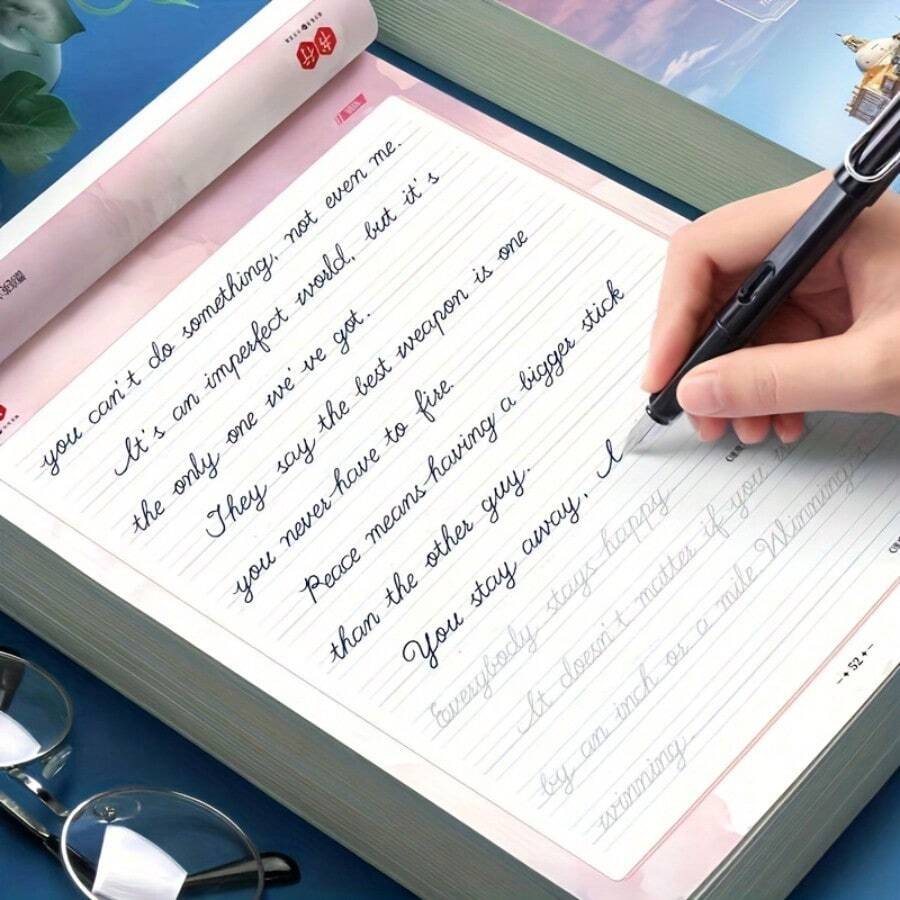 you can't do something, not even me.
It's an imperfect world, but it's
the only one we've got.
They say the best weapon is one
you never have to fire.
Peace means having a bigger stick
than the other guy.
You stay away, I
Everybody stays happy
It doesn't matter if you
by an inch or a mile Winning's
winning.
52